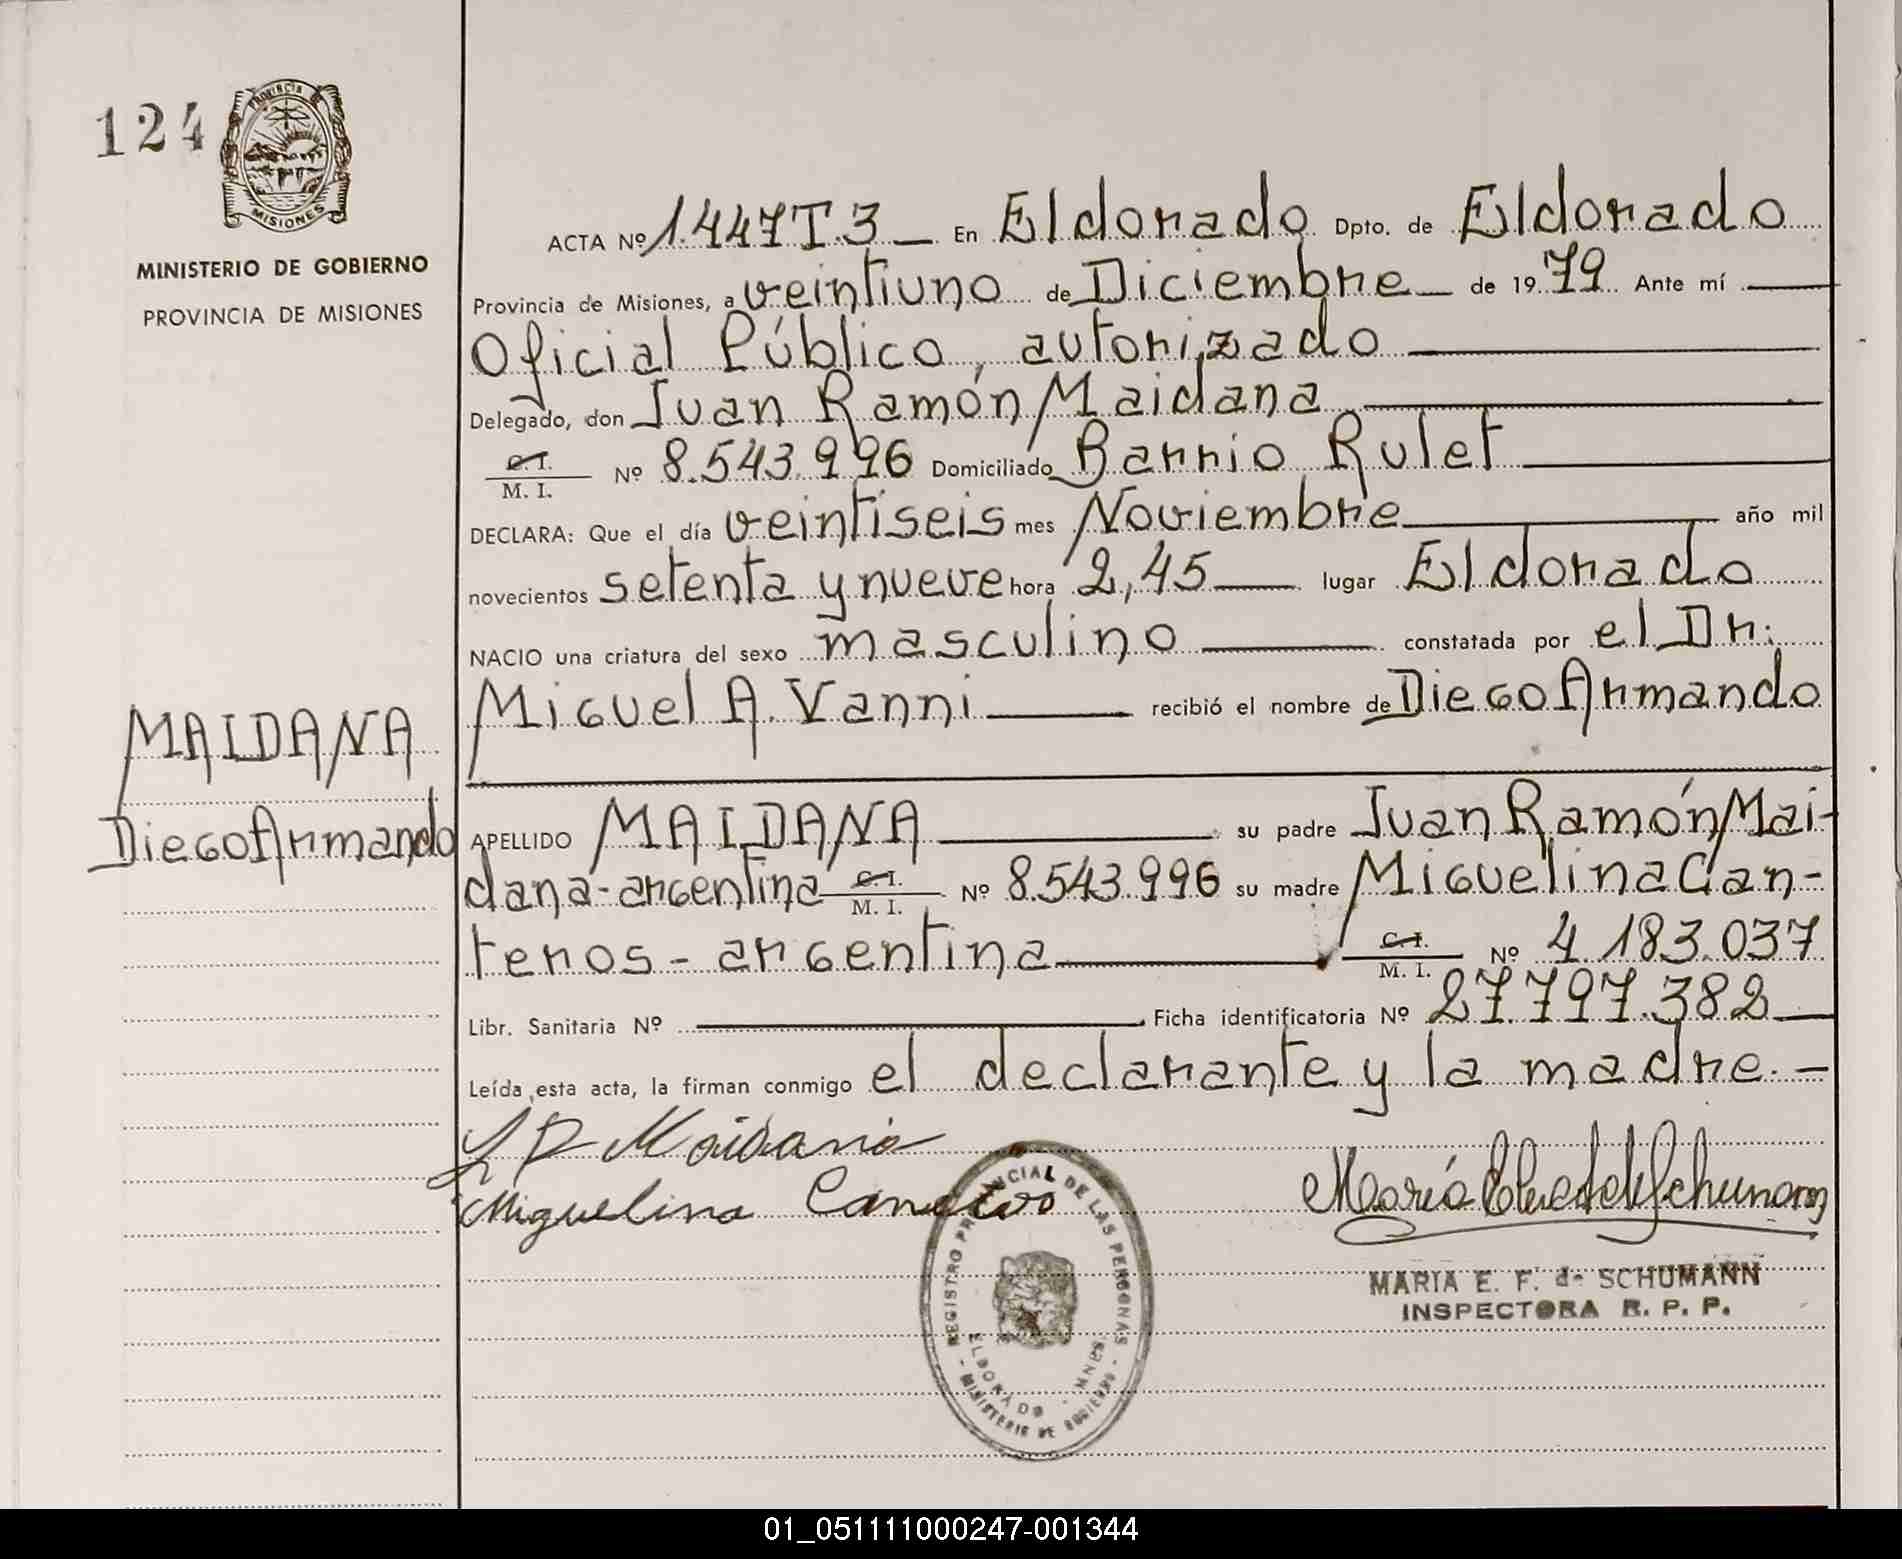 124
PROVINCIA DE
MISIONES
MINISTERIO DE GOBIERNO
PROVINCIA DE MISIONES
ACTA Nº 1.447 T.3 En Eldorado Dpto. de Eldorado
Provincia de Misiones, a veintiuno de Diciembre de 1979 Ante mí
Oficial Público, autorizado
Delegado, don Juan Ramón Maidana
C.I.
M. I. Nº 8.543.996 Domiciliado Barrio Rulet
DECLARA: Que el día veintiseis mes Noviembre año mil
novecientos setenta y nueve hora 2,45 lugar Eldorado
NACIO una criatura del sexo masculino constatada por el Dr:
Miguel A. Vanni recibió el nombre de Diego Armando
MAIDANA
Diego Armando
APELLIDO MAIDANA su padre Juan Ramón Mai-
dana-argentina C.I.
M. I. Nº 8.543.996 su madre Miguelina Can-
teros - argentina C.I.
M. I. Nº 4.183.037
Libr. Sanitaria Nº Ficha identificatoria Nº 27.797.382
Leída esta acta, la firman conmigo el declarante y la madre.-
Maidana
Miguelina
María Schumann
REGISTRO PROVINCIAL DE LAS PERSONAS
ELDORADO - MNES
- MINISTERIO DE GOBIERNO -
MARIA E. F. de SCHUMANN
INSPECTORA R. P. P.
01_051111000247-001344